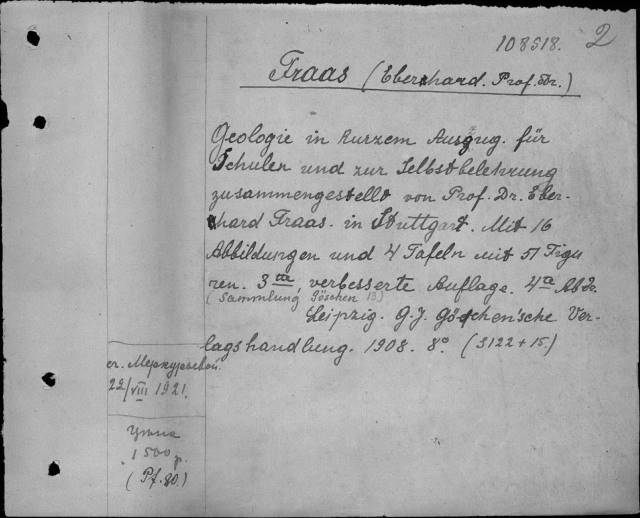 108518. 2
Fraas (Eberhard. Prof. Dr.)
Geologie in kurzem Auszug. für
Schulen und zur Selbstbelehrung
zusammengestellt von Prof. Dr. Eber-
hard Fraas. in Stuttgart. Mit 16
Abbildungen und 4 Tafeln mit 51 Figu
ren. 3te, verbesserte Auflage. 4te Abdr.
(Sammlung Göschen 13)
Leipzig. G. J. Göschen'sche Ver-
lagshandlung. 1908. 8° (3122 + 15)
от. Меркурьевой.
22/VIII 1921.
Цена
1500 р.
(Pf. 80.)